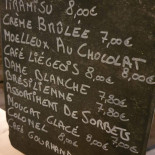 TIRAMISU 8,00€
CRÈME BRÛLÉE 7,00€
MOELLEUX AU CHOCOLAT
CAFÉ LIÉGEOIS 8,00€ 8,00€
DAME BLANCHE
BRÉSILIENNE 7,80€
ASSORTIMENT DE SORBETS 7,80€
NOUGAT GLACÉ
COLONEL 8,00€
CAFÉ GOURMAND